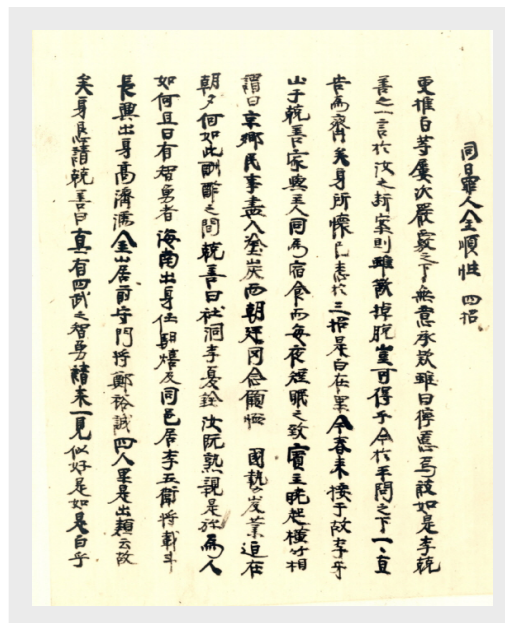 同日罪人金順性 四招
更推白等屢次嚴覈之下無意承款雖曰憯慝焉敢如是李兢
善之一言於汝之折案則雖欲掉脫豈可得乎今於平問之下一一直
告爲齊矣身所懷已悉於三招是白在果今春末接于故李乎
山子兢善家與主人同爲宿食而每夜短眠之致賓主晩起橫竹相
謂曰京鄕民事盡入塗炭而朝廷罔念顧恤 國勢岌業迫在
朝夕何如此酬酢之間兢善曰社洞李憂銓汝旣熟親是旀爲人
如何且曰有智勇者海南出身任馹熺及同邑居李五衛將載斗
長興出身高濟漙金山居前守門將鄭裕誠四人果是出類云故
矣身忽請兢善曰眞有四武之智勇請來一見似好是如是白乎